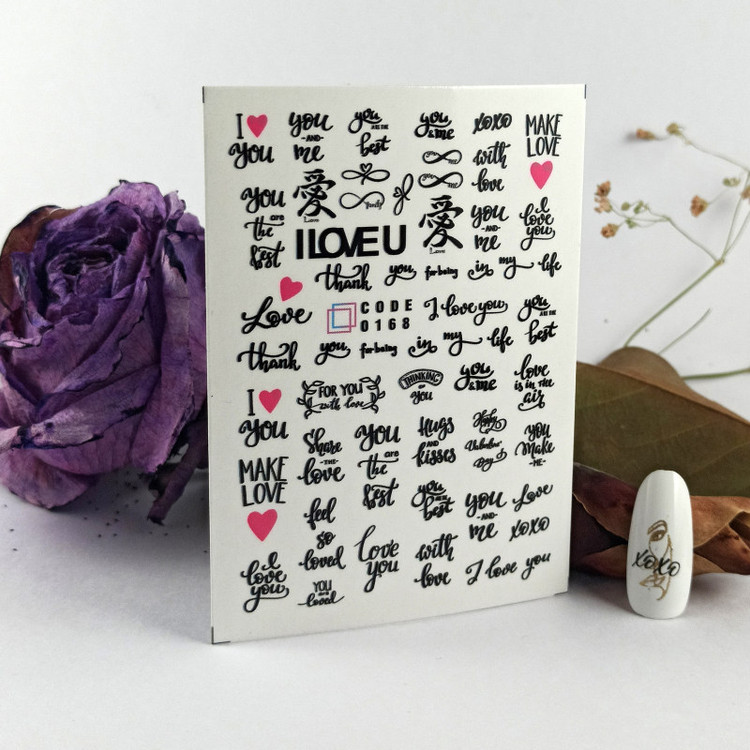 I
you
you
-AND-
me
you
ARE THE
best
you
& me
xoxo
MAKE
LOVE
with
love
you
are
the
best
愛
Love
愛
Love
you
-AND-
me
I
love
you
I LOVE U
thank you for being in my life
Love
CODE
0168
I love you
you
ARE THE
best
thank you for being in my life
I
you
FOR YOU
with love
THINKING
OF
YOU
you
& me
love
is in the
air
MAKE
LOVE
Share
-THE-
love
you
are
the
best
Hugs
AND
kisses
Happy
Valentine
Day
you
make
-ME-
feel
so
loved
you
best
you
-AND-
me
Love
xoxo
I
love
you
YOU
loved
love
you
with
love
I love you
xoxo